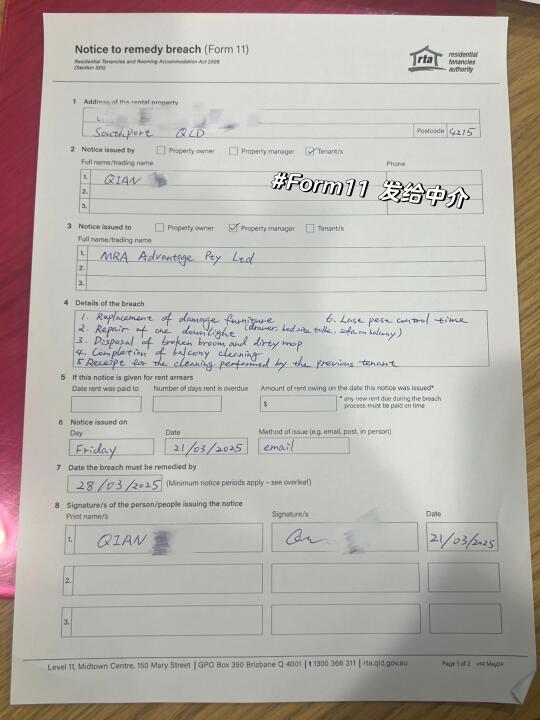 Notice to remedy breach (Form 11)
Residential Tenancies and Rooming Accommodation Act 2008
(Section 325)
rta
residential
tenancies
authority
1 Address of the rental property
Southport QLD
Postcode 4215
2 Notice issued by Property owner Property manager Tenant/s
Full name/trading name Phone
1. QIAN
2.
3.
#Form11 发给中介
3 Notice issued to Property owner Property manager Tenant/s
Full name/trading name
1. MRA Advantage Pty Ltd
2.
3.
4 Details of the breach
1. Replacement of damage furniture 6. Last pest control time
(drawer, bed side table, sofa on balcony)
2. Repair of one downlight
3. Disposal of broken broom and dirty mop
4. Completion of balcony cleaning
5 Receipt for the cleaning performed by the previous tenant
5 If this notice is given for rent arrears
Date rent was paid to Number of days rent is overdue Amount of rent owing on the date this notice was issued*
$
* any new rent due during the breach
process must be paid on time
6 Notice issued on
Day Date Method of issue (e.g. email, post, in person)
Friday 21/03/2025 email
7 Date the breach must be remedied by
28/03/2025 (Minimum notice periods apply – see overleaf)
8 Signature/s of the person/people issuing the notice
Print name/s Signature/s Date
1. QIAN 21/03/2025
2.
3.
Level 11, Midtown Centre, 150 Mary Street | GPO Box 390 Brisbane Q 4001 | t 1300 366 311 | rta.qld.gov.au
Page 1 of 2 v14 May24